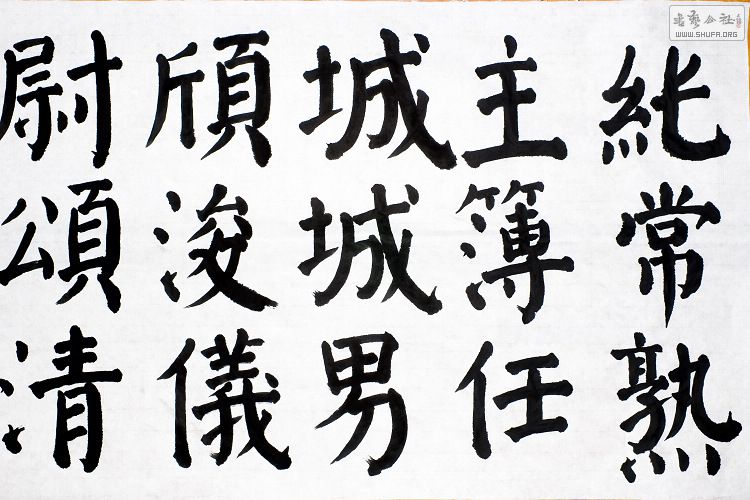 純常熟
主簿任
城城男
頎浚儀
尉頌清
书艺公社
WWW.SHUFA.ORG